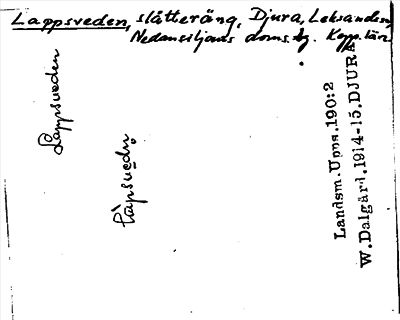 Lappsveden, slåtteräng, Djura, Leksands
Nedansiljans doms. Kopp. län.
Lappsveden
Landsm. Upps. 190:2
W. Dalgård. 1914-15. DJURA